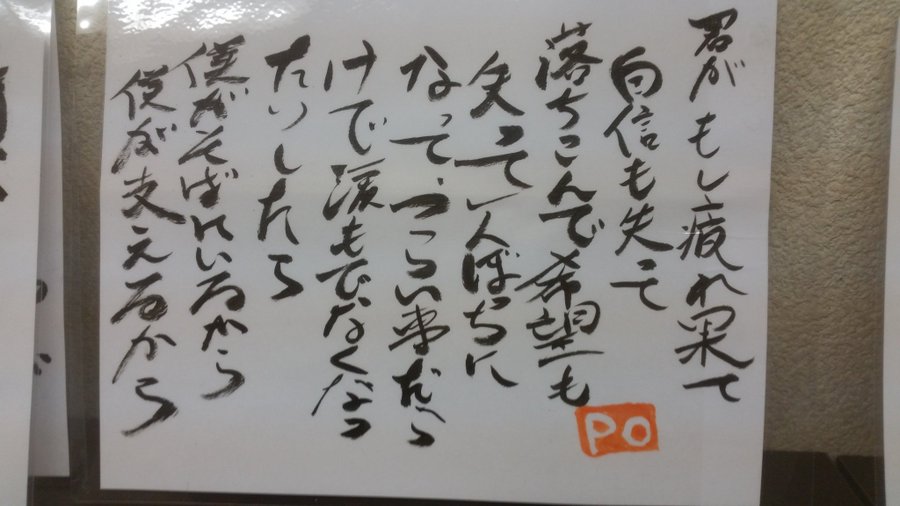 君がもし疲れ果て
自信も失って
落ちこんで希望も
失って一人ぼっちに
なって、つらい事だら
けで涙もでなくなっ
たりしたら
僕がそばにいるから
僕が支えるから
PO